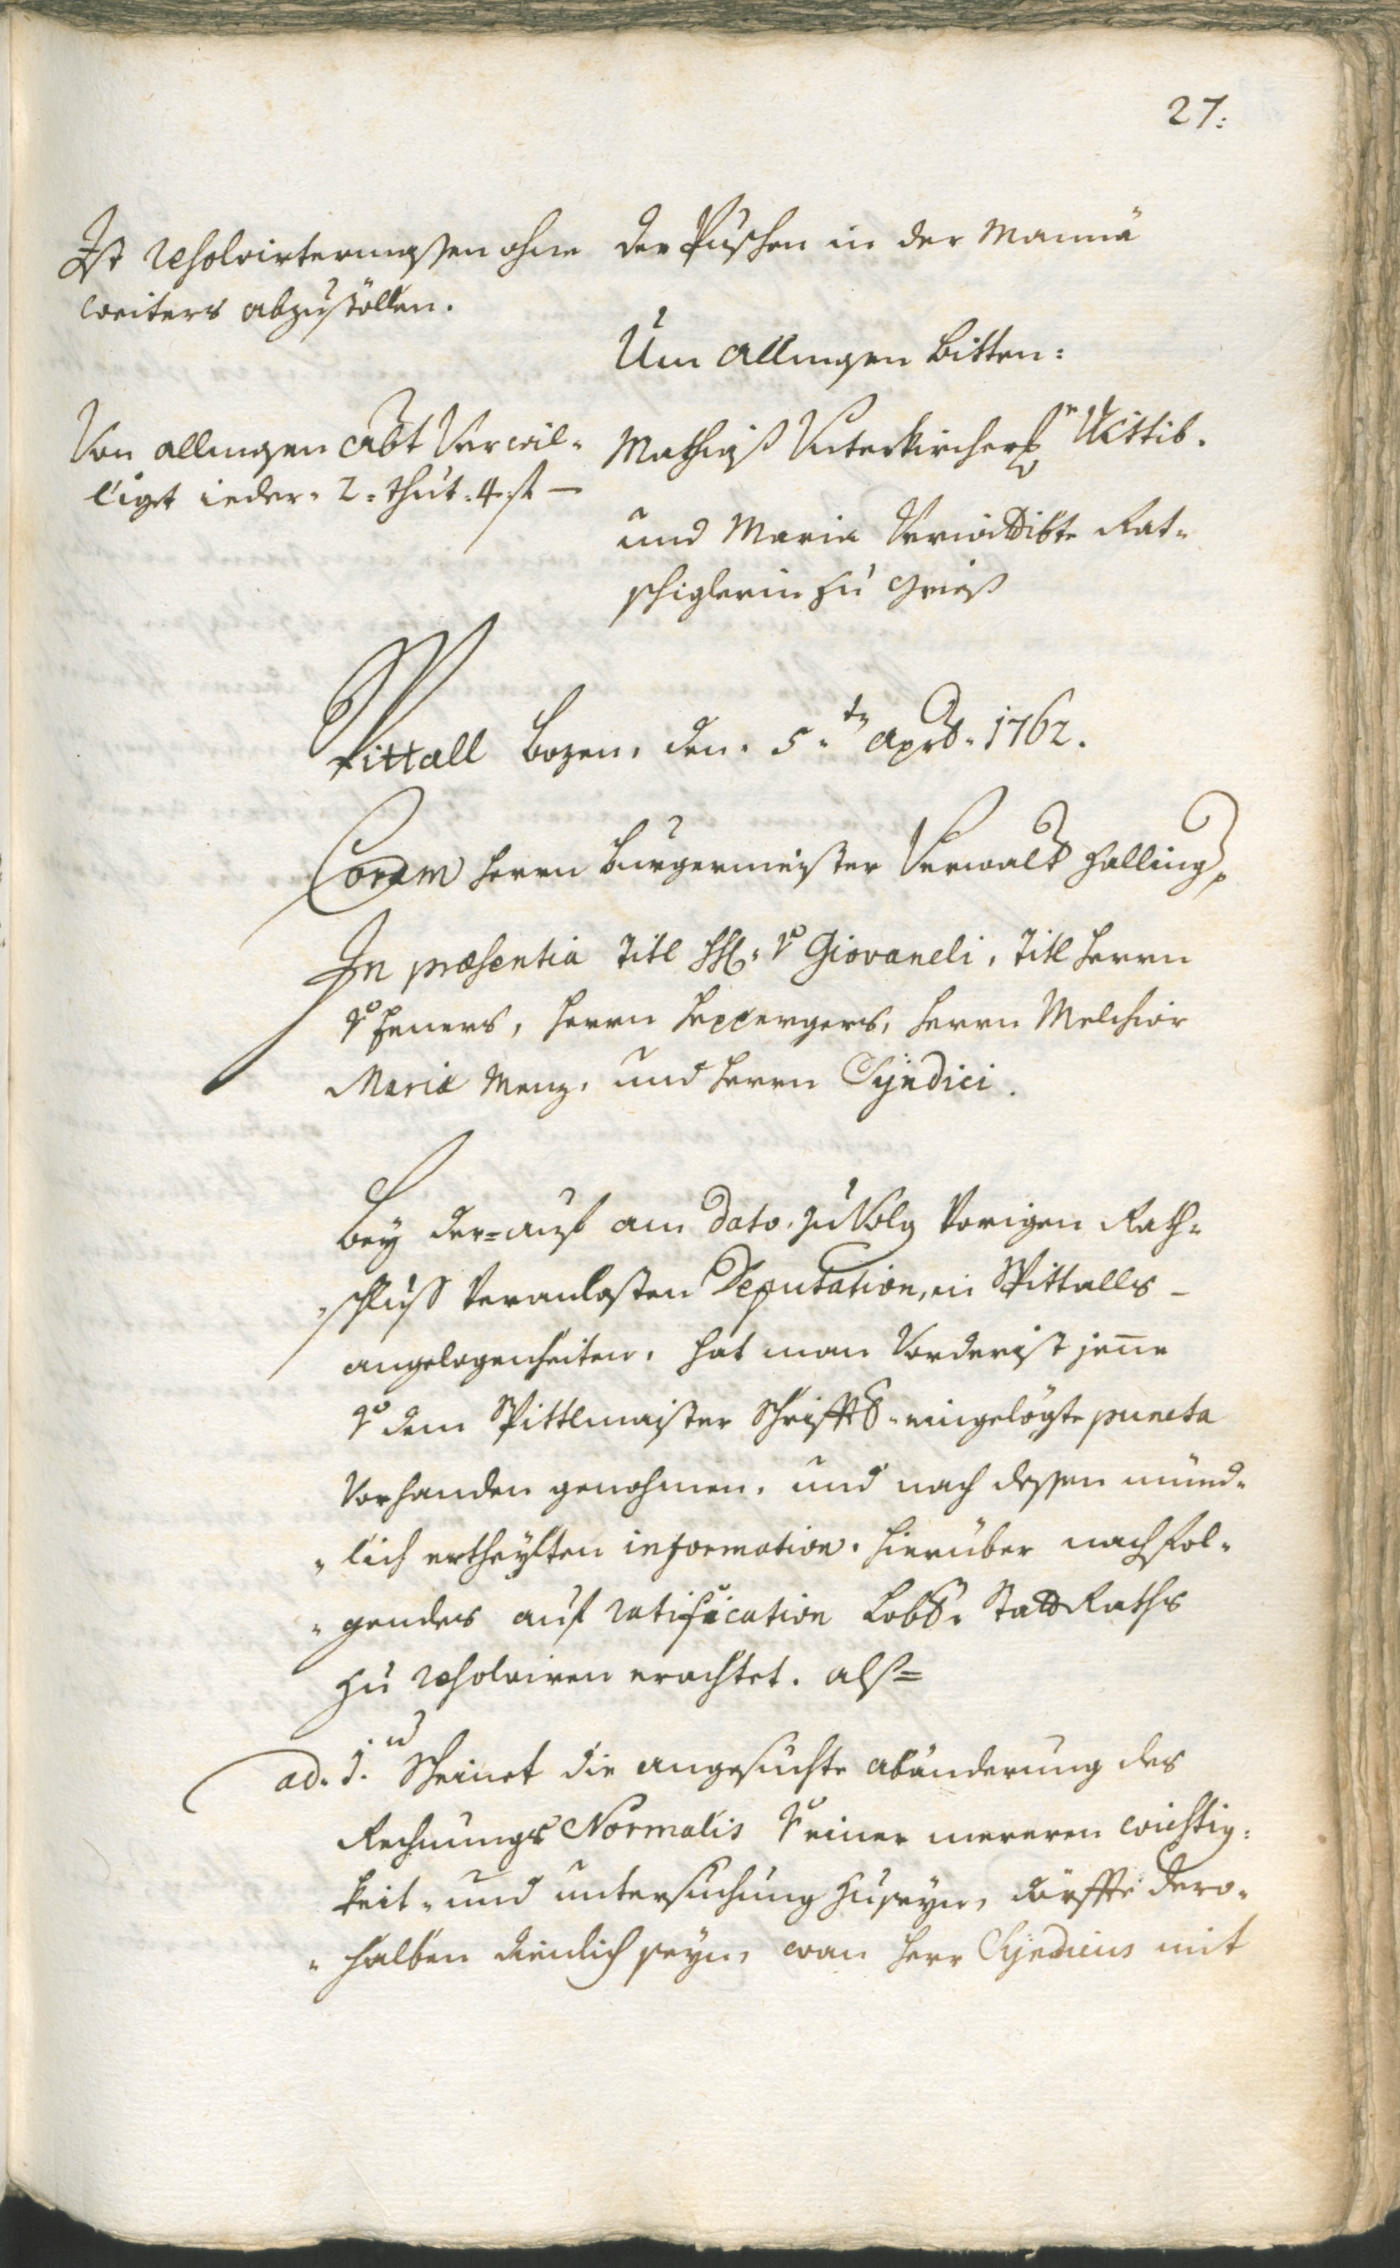 27:
Ist resolvirtermassen ohne
weiters abzustöllen.
der Puschen in der Mannä
Um Allmosen bitten:
Von allmosen Abt Verwil-
liget ieder. 2. thut. 4 f
Mathias Unterkircher Wittib.
und Maria Verwittibte Rat-
schiglerin zu Grieß
Spittall Bozen, den. 5.ten April. 1762.
Coram Herrn Burgermeister Verwalt. Halling
In præsentia Titl HH. v. Giovaneli, Titl Herrn
v. Zeners, Herrn Hepperger, Herrn Melchior
Maria Menz, und Herrn Syndici.
Bey der auf am Dato. zu Volg Vorigen Rath-
schluss Veranlasten Deputation, in Spittalls-
angelegenheiten, hat man Vorderist jene
v. dem Spittlmaister Schrifftl. eingelögte puncta
Vorhanden genohmen, und nach dessen münd-
lich ertheylten information, hierüber nachfol-
gendes auf ratification Lobl. Statt Raths
zu resolviren erachtet. alß=
ad. 1.um Scheinet die angesuchte abänderung des
Rechnungs Normalis v. einer mereren wichtig-
keit- und untersuchung zuseyn, dörffte dero-
halben dienlich seyn, wan Herr Syndicus mit